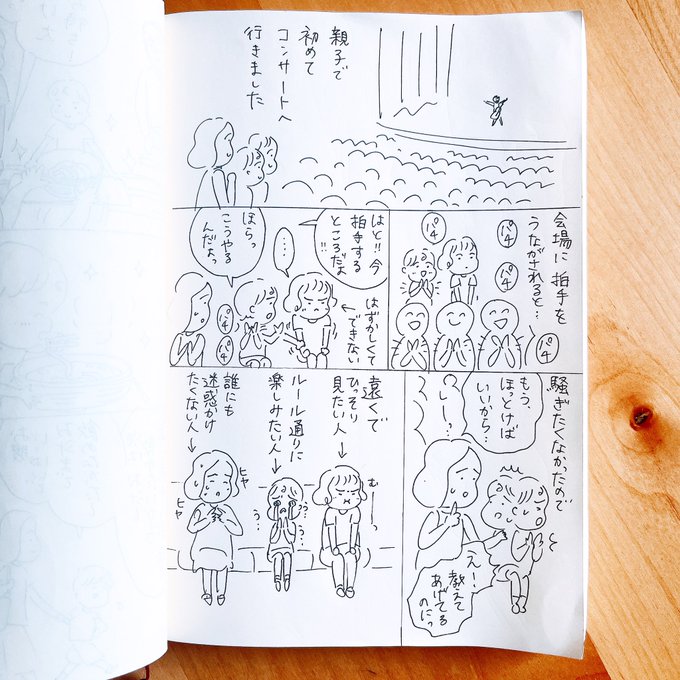 親子で
初めて
コンサートへ
行きました
会場に拍手を
うながされると…
パチ
パチ
パチ
パチ
はと!!今
拍手する
ところだよ!!
はずかしくて
できない
…
ほらっ
こうやる
んだよっ
パチ
パチ
騒ぎたくなかったので
もう、
ほっとけば
いいから…
しーっ
え!
教えて
あげてる
のにっ
遠くで
ひっそり
見たい人→
むーっ
ルール通りに
楽しみたい人→
うっ…
う…
誰にも
迷惑かけ
たくない人→
ヒヤ
ヒヤ